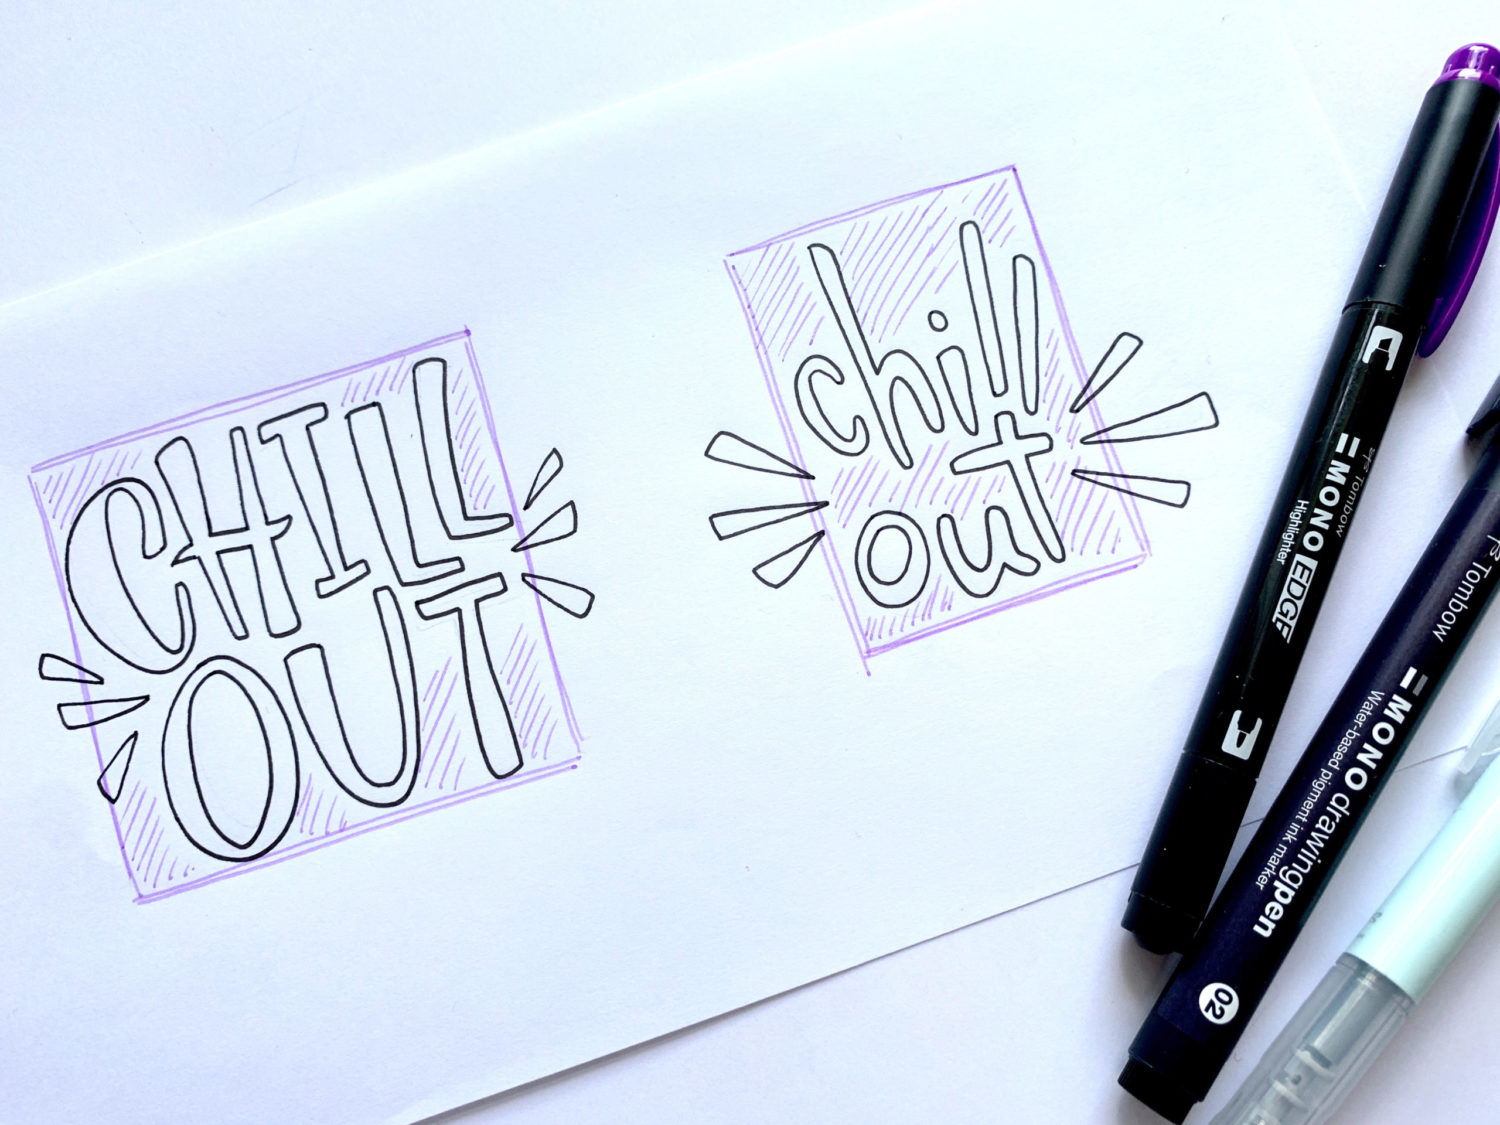 CHILL
OUT
chill
out
Tombow
MONO EDGE
Highlighter
Tombow
MONO drawing pen
Water-based pigment ink marker
02